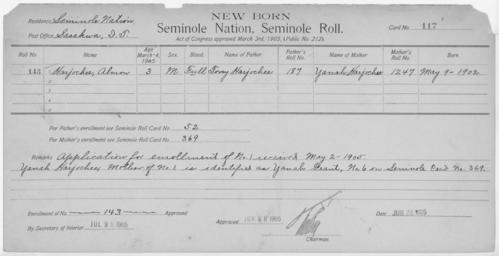 NEW BORN
Residence, Seminole Nation.
Seminole Nation, Seminole Roll.
Card No. 117
Post Office, Sasakwa, I.T.
Act of Congress approved March 3rd, 1905, (Public No. 212).
Roll No. Name Age March 4, 1905 Sex. Blood. Name of Father Father's Roll No. Name of Mother Mother's Roll No. Born.
143 Harjochee, Almon 3 M Full Tony Harjochee 187 Yanah Harjochee 1247 May 9 - 1902
For Father's enrollment see Seminole Roll Card No. 52
For Mother's enrollment see Seminole Roll Card No. 369
Remarks Application for enrollment of No. 1 received May 2 - 1905.
Yanah Harjochee Mother of No. 1 is identified as Yanah Grant, No. 6 on Seminole Card No. 369.
Enrollment of No. 143 Approved
By Secretary of Interior 1905
Approved 1905
Chairman.
Date of 1905